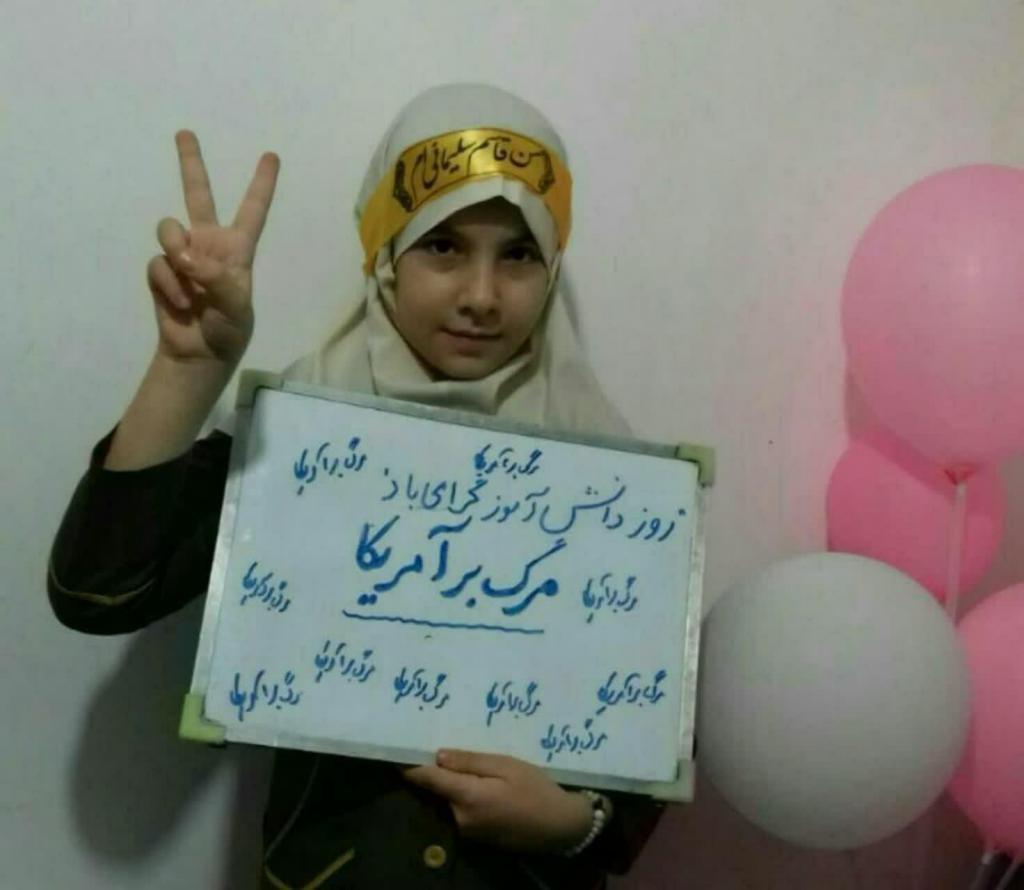 من قاسم سلیمانی ام
مرگ بر آمریکا
مرگ بر آمریکا
روز دانش آموز گرامی باد
مرگ بر آمریکا
مرگ بر آمریکا
مرگ بر آمریکا
مرگ بر آمریکا
مرگ بر آمریکا
مرگ بر آمریکا
مرگ بر آمریکا
مرگ بر آمریکا
مرگ بر آمریکا